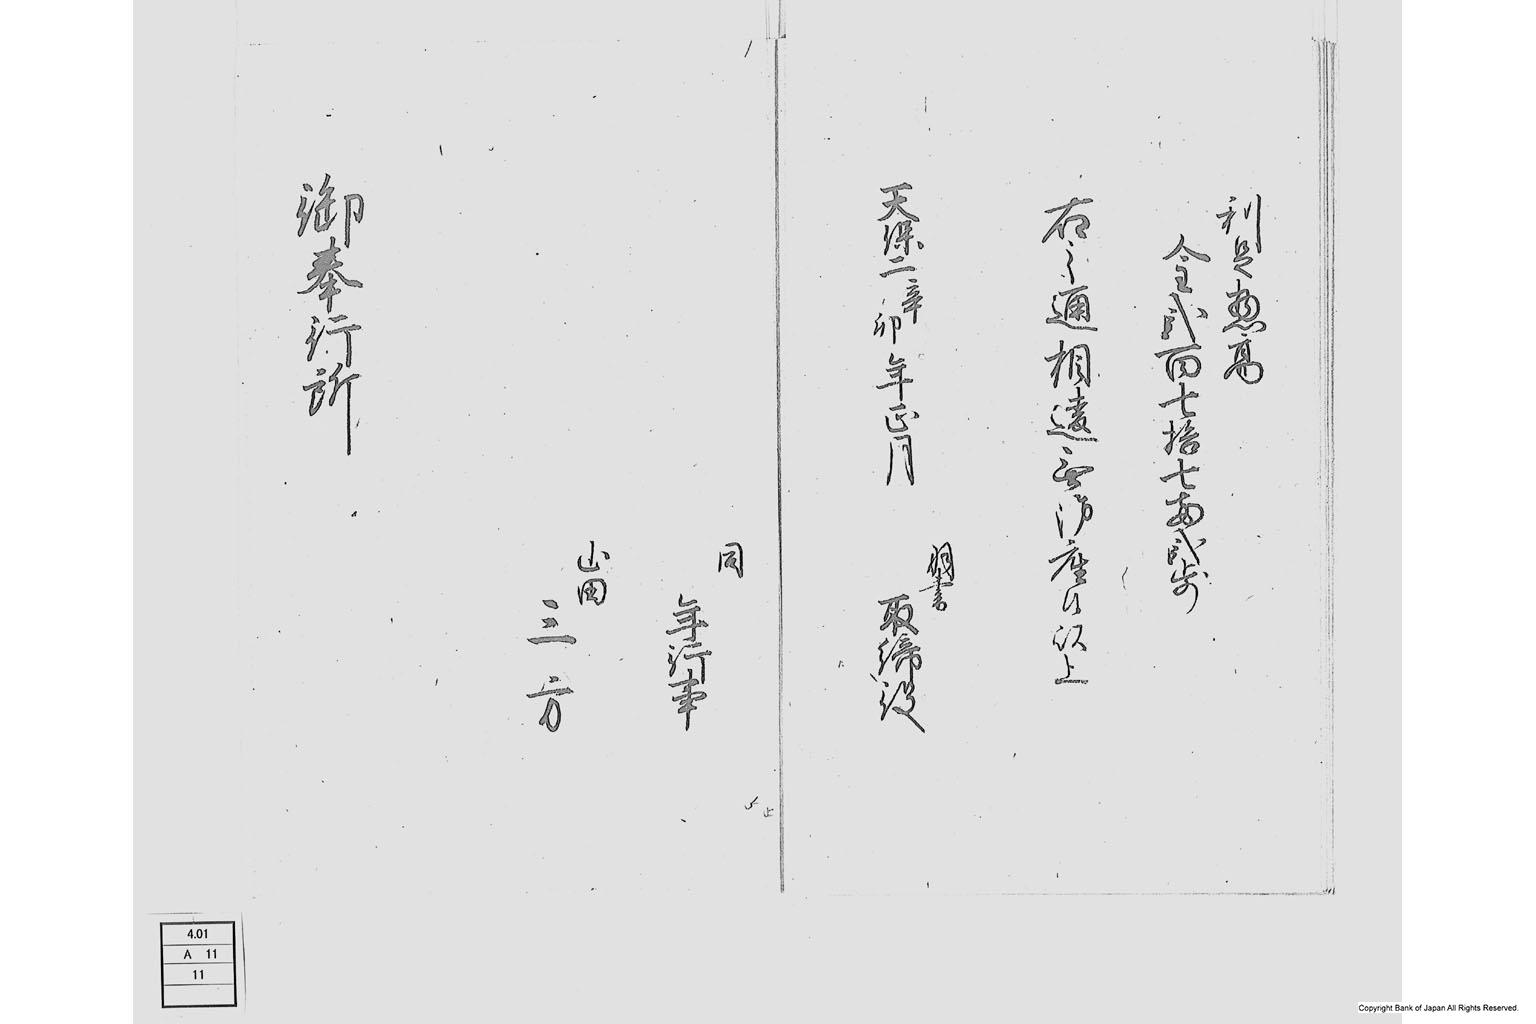 利足惣高
金弐百七拾七両弐歩
右之通相違無御座候以上
天保二辛卯年正月
羽書
取締役
同
年行事
山田
三方
御奉行所
4.01
A 11
11
Copyright Bank of Japan All Rights Reserved.